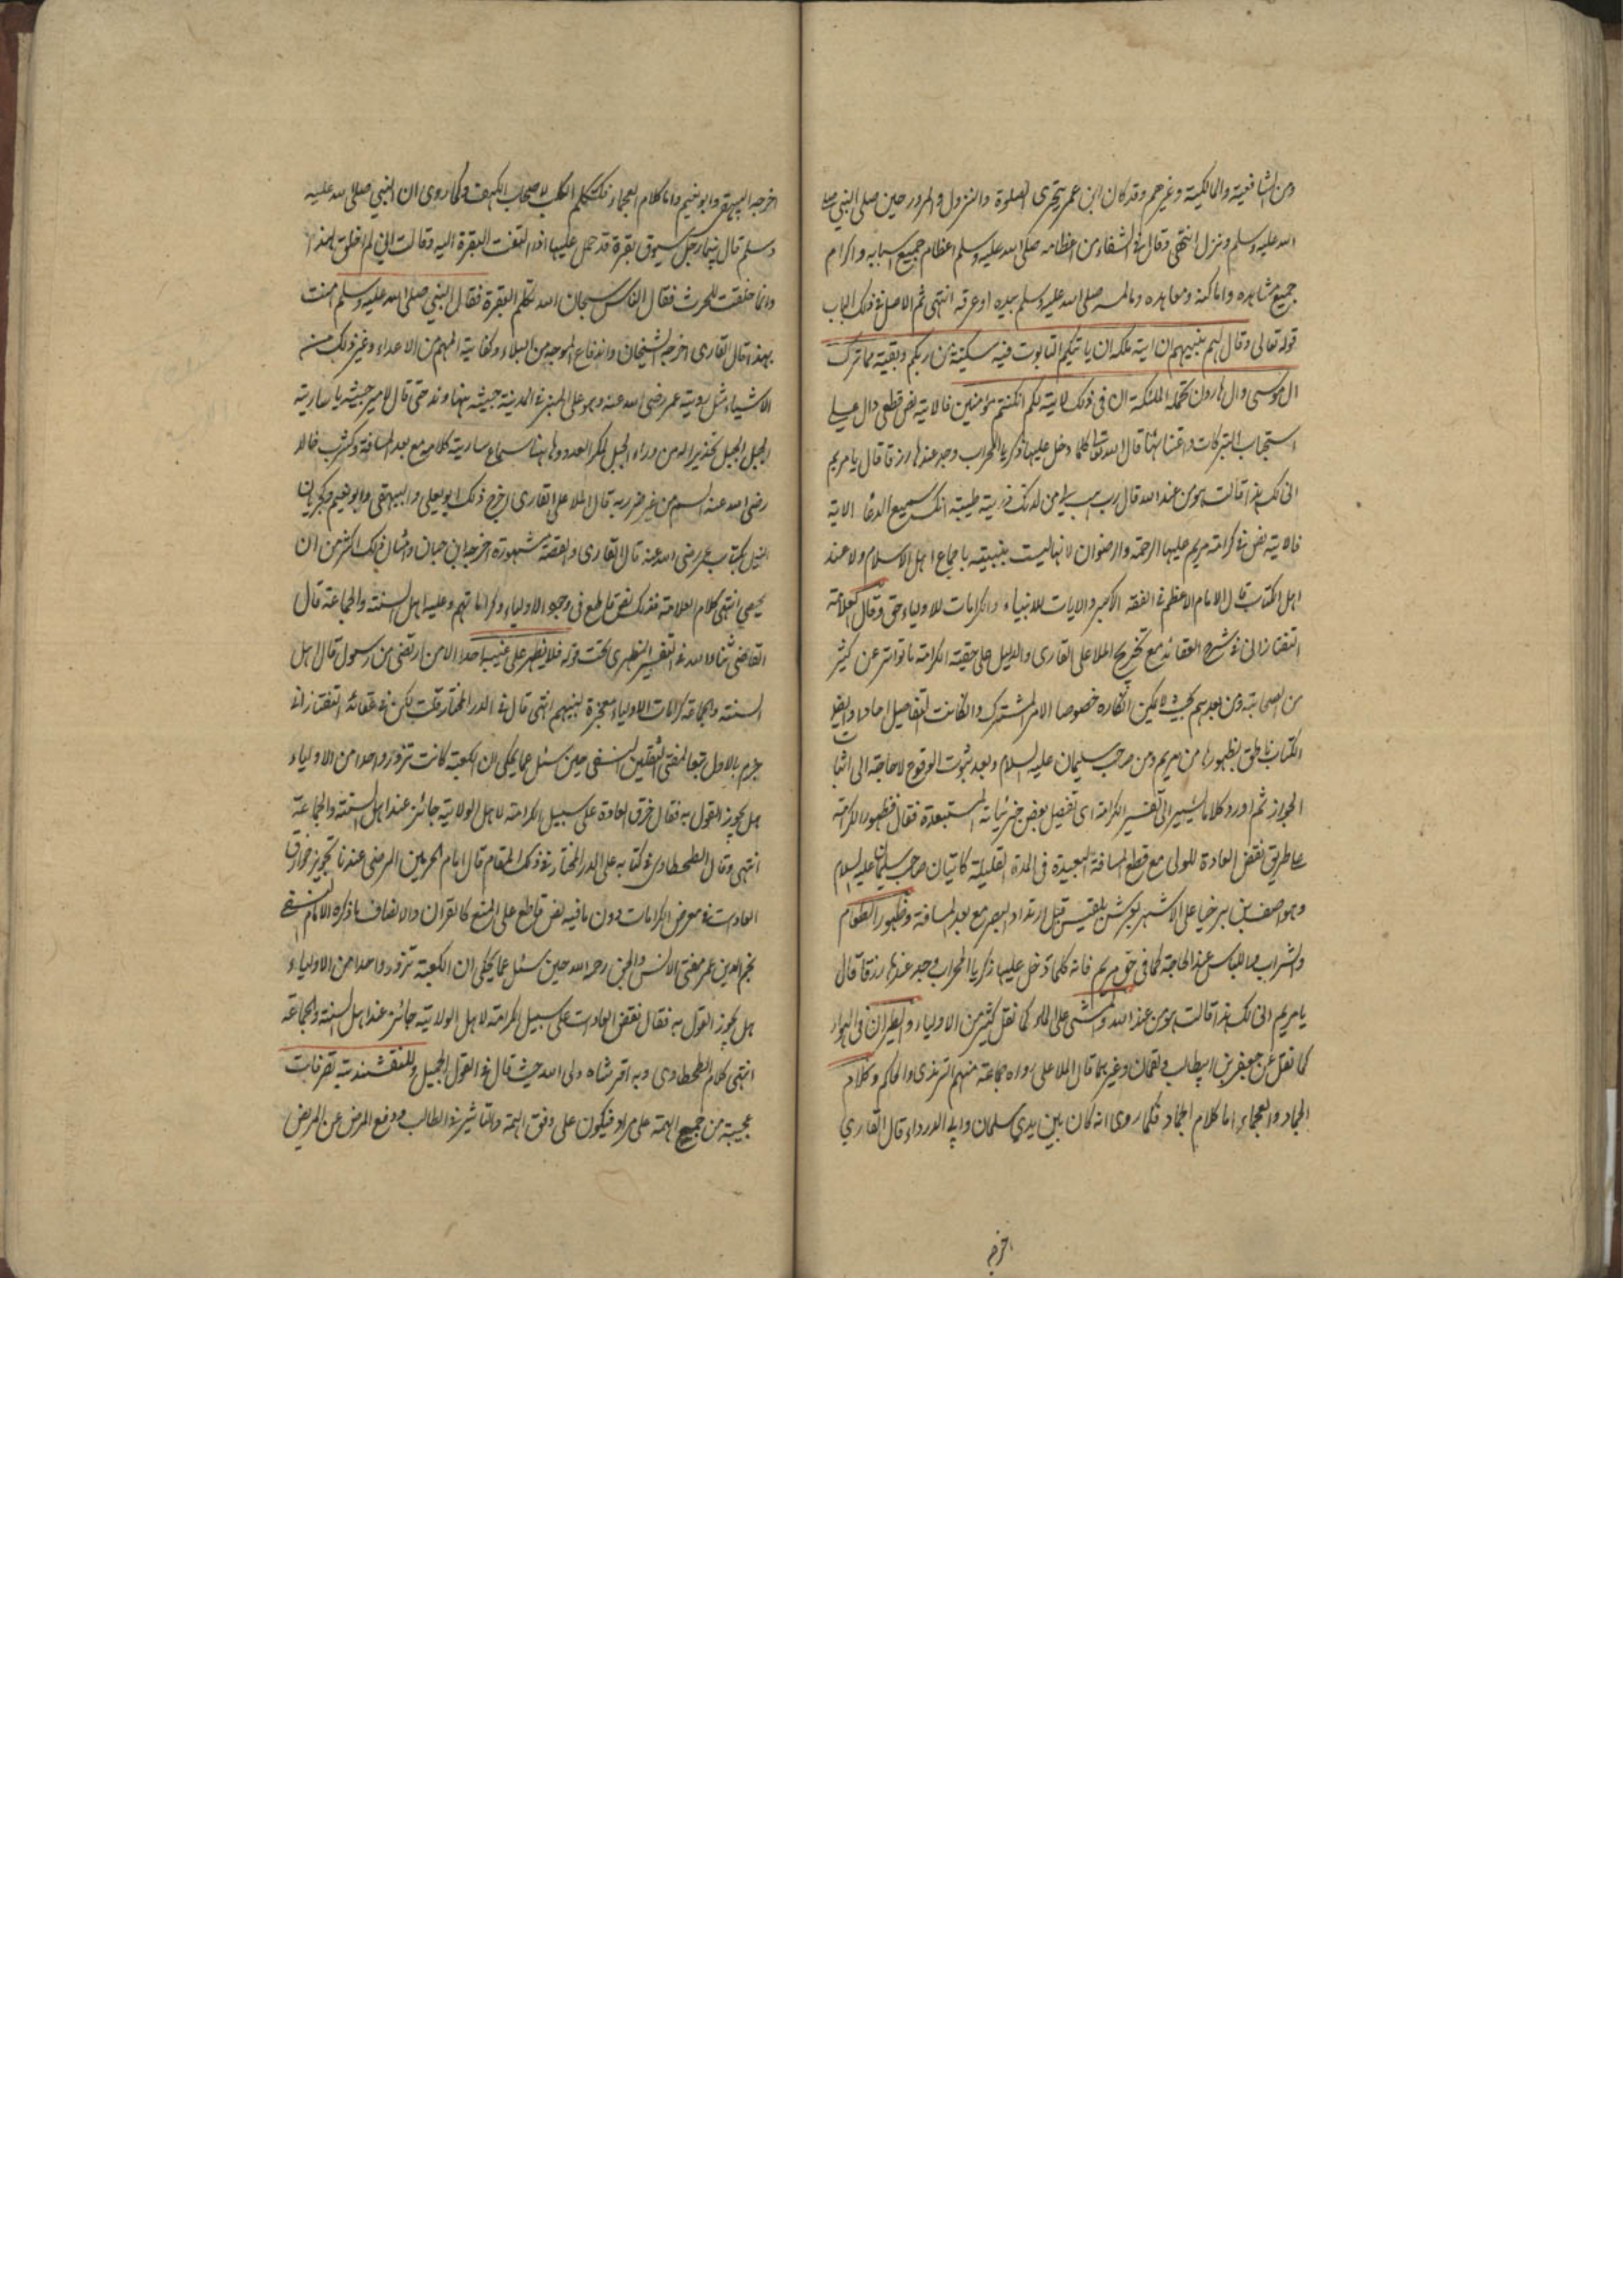 ومن الشافعية والمالكية وغيرهم وقد كان ابن عمر يتحرى الصلوة والنزول والمرور حين صلى النبي صلى
الله عليه وسلم ونزل انتهى وقال في الشفاء من اعظامه صلى الله عليه وسلم اعظام جميع اسبابه واكرام
جميع مشاهده واماكنه ومعاهده ومالمسه صلى الله عليه وسلم بيده او عرف به انتهى ثم الاصل في ذلك الباب
قوله تعالى وقال لهم نبيهم ان اية ملكه ان ياتيكم التابوت فيه سكينة من ربكم وبقية مما ترك
ال موسى وال هارون تحمله الملئكة ان في ذلك لاية لكم ان كنتم مؤمنين فالاية نص قطعي دال على
استحباب التبركات واعتنائها قال الله تعالى كلما دخل عليها زكريا المحراب وجد عندها رزقا قال يا مريم
انى لك هذا قالت هو من عند الله قال رب هب لي من لدنك ذرية طيبة انك سميع الدعا الاية
فالاية نص في كرامة مريم عليها الرحمة والرضوان لانها ليست بنبية باجماع اهل الاسلام ولا عند
اهل الكتاب قال الامام الاعظم في الفقه الاكبر والايات للانبياء والكرامات للاولياء حق وقال العلامة
التفتازاني في شرح العقائد مع تخريج الملا على القارى والدليل على حقية الكرامة ما تواتر عن كثير
من الصحابة ومن بعدهم بحيث لا يمكن انكاره خصوصا الامر المشترك وان كانت التفاصيل احادا وايضا
الكتاب ناطق بظهورها من مريم ومن صاحب سليمان عليه السلام وبعد ثبوت الوقوع لا حاجة الى اثبات
الجواز ثم اورد كلاما يشير الى تفسير الكرامة اى تفصيل بعض جزئياته المستبعدة فقال فظهور الكرامة
على طريق نقض العادة للولى مع قطع المسافة البعيدة فى المدة القليلة كاتيان صاحب سليمان عليه السلام
وهو اصف بن برخيا على الاشهر بعرش بلقيس قبل ارتداد البصر مع بعد المسافة وظهور الطعام
والشراب واللباس عند الحاجة كما فى حق مريم فانه كلما دخل عليها زكريا المحراب وجد عندها رزقا قال
يا مريم انى لك هذا قالت هو من عند الله والمشى على الماء كما نقل كثير من الاولياء والطيران فى الهواء
كما نقل عن جعفر بن ابيطالب ولقمان وغيرهما قال الملا على رواه جماعة منهم الترمذى والحاكم وكلام
الجماد والعجماء اما كلام الجماد فكما روى انه كان بين يدي سلمان وابي الدرداء قال القاري
اخرجه
اخرجه البيهقى وابو نعيم واما كلام العجماء فكتكلم الكلب لاصحاب الكهف وكما روى ان النبي صلى الله عليه
وسلم قال بينما رجل يسوق بقرة قد حمل عليها اذ التفت البقرة اليه وقالت اني لم اخلق لهذا
وانما خلقت للحرث فقال الناس سبحان الله تتكلم البقرة فقال النبي صلى الله عليه وسلم امنت
بهذا قال القارى اخرجه الشيخان واندفاع الموجه من البلاء وكفاية المهم من الاعداء وغير ذلك من
الاشياء مثل روية عمر رضى الله عنه وهو على المنبر في المدينة جيشه بنهاوند حتى قال لامير جيشه يا سارية
الجبل الجبل تحذيرا له من وراء الجبل لمكر العدو وهناك سماع سارية كلامه مع بعد المسافة وكشرب خالد
رضى الله عنه السم من غير ضرر به قال الملا على القارى اخرج ذلك ابو يعلى والبيهقى وابو نعيم وكجريان
النيل بكتاب عمر رضى الله عنه قال القارى والقصة مشهورة اخرجه ابن حبان وامثال ذلك اكثر من ان
يحصى انتهى كلام العلامة فذلك نص قاطع فى وجود الاولياء وكراماتهم وعليه اهل السنة والجماعة قال
القاضى ثناء الله في التفسير المظهرى تحت قوله فلا يظهر على غيبه احدا الا من ارتضى من رسول قال اهل
السنة والجماعة كرامات الاولياء معجزة لنبيهم انتهى قال في الدر المختار قلت لكن في عقائد التفتازاني
جزم بالاول تبعا لمفتى الثقلين النسفى حين سئل عما يحكى ان الكعبة كانت تزور واحدا من الاولياء
هل يجوز القول به فقال خرق العادة على سبيل الكرامة لاهل الولاية جائز عند اهل السنة والجماعة
انتهى وقال الطحطاوى في كتابه على الدر المختار في ذلك المقام قال امام الحرمين المرضى عندنا تجويز خوارق
العادت في معرض الكرامات دون ما فيه نص قاطع على المنع كالقران والانصاف ما ذكره الامام النسفى
نجم الدين عمر مفتى الانس والجن رحمه الله حين سئل عما يحكى ان الكعبة تزور واحدا من الاولياء
هل يجوز القول به فقال نقض العادت على سبيل الكرامة لاهل الولاية جائز عند اهل السنة والجماعة
انتهى كلام الطحطاوى وبه اقر شاه ولى الله حيث قال في القول الجميل وللنقشبندية تصرفات
عجيبة من جميع الهمة على مراد فيكون على وفق الهمة والتاثير في الطالب ودفع المرض عن المريض